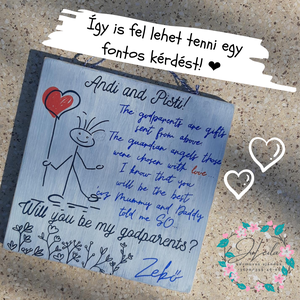 Így is fel lehet tenni egy
fontos kérdést! ❤
Andi and Pisti!
The godparents are gifts
sent from above
The guardian angels those
were chosen with love
I know that you
will be the best
cuz Mummy and Daddy
told me SO.
Will you be my godparents?
Zekő